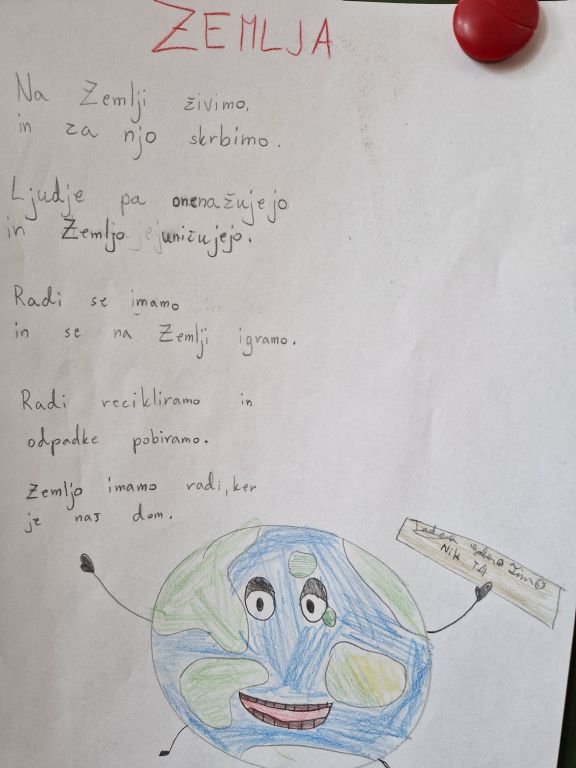 ZEMLJA
Na Zemlji živimo,
in za njo skrbimo.
Ljudje pa onenažujejo
in Zemljo uničujejo.
Radi se imamo
in se na Zemlji igramo.
Radi recikliramo in
odpadke pobiramo.
Zemljo imamo radi, ker
je naš dom.
Nik